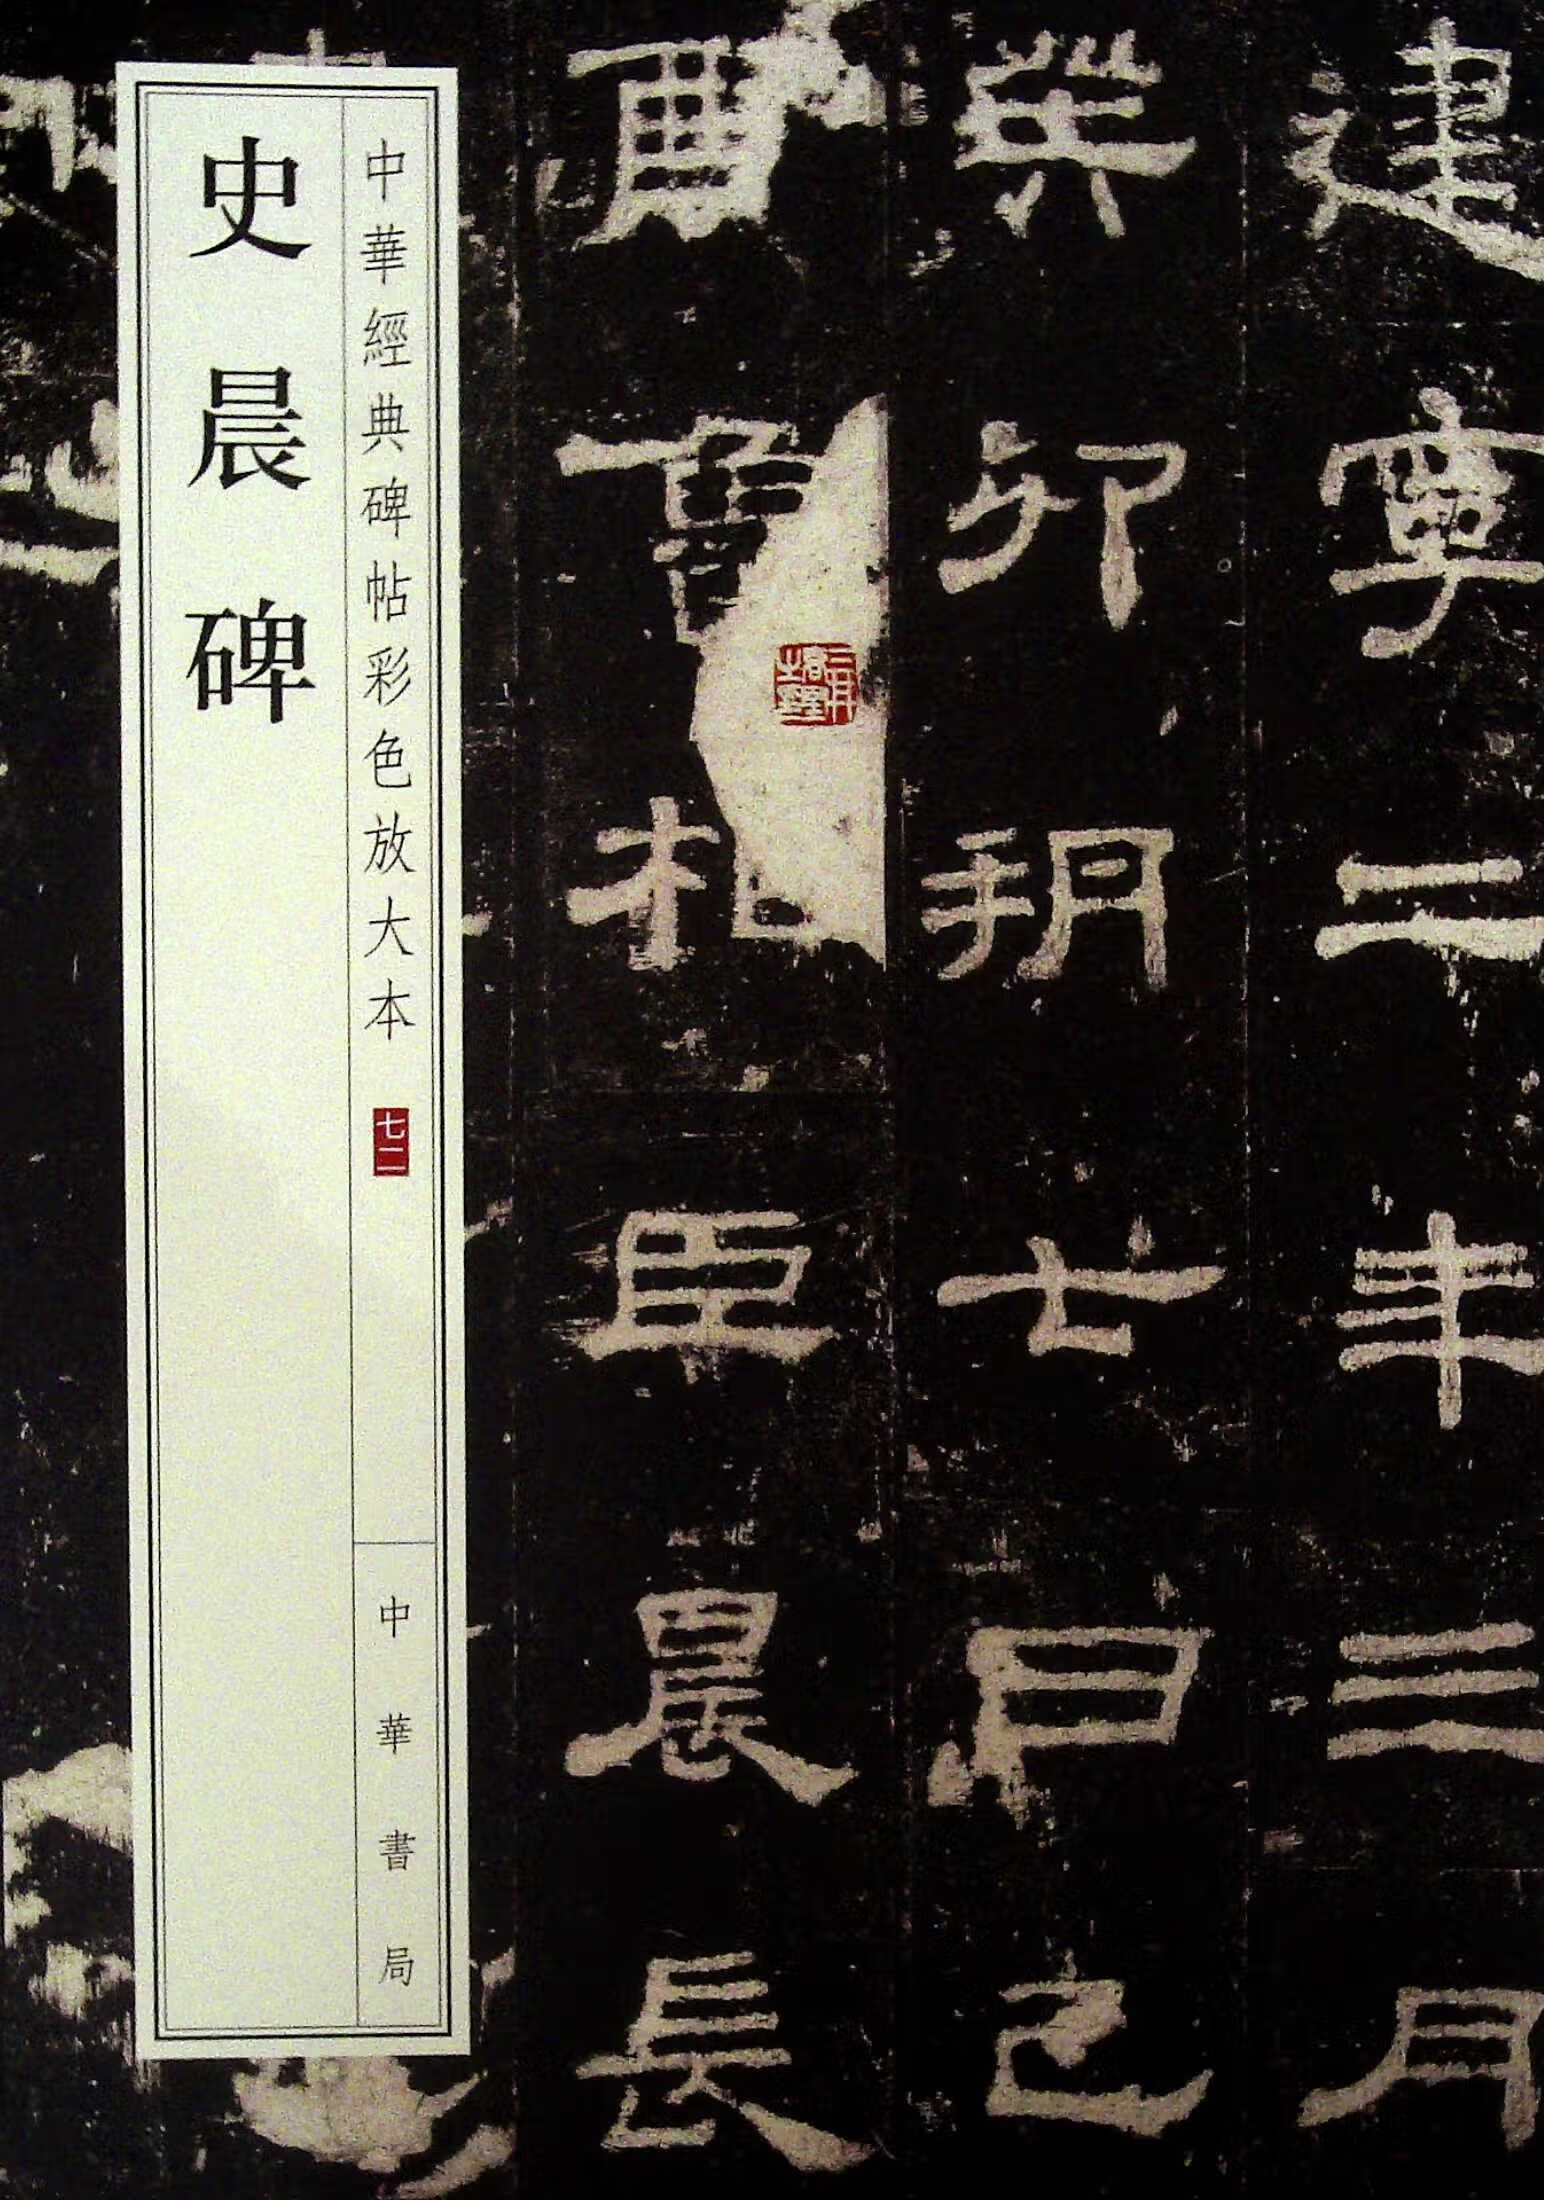 建寧二年三月
癸卯朔七日己
酉魯相臣晨長
中華經典碑帖彩色放大本
七二
中華書局
史晨碑